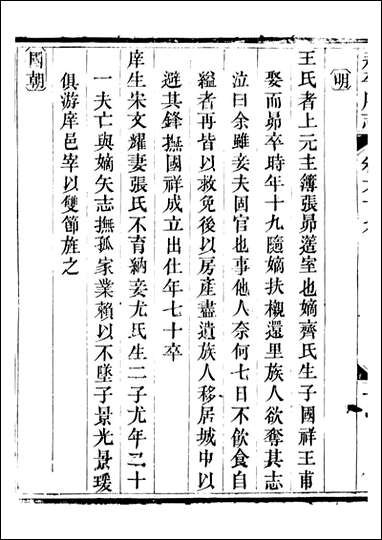 明
王氏者上元主簿張昴簉室也嫡齊氏生子國祥王甫
娶而昴卒時年十九隨嫡扶櫬還里族人欲奪其志
泣曰余雖妾夫固官也事他人奈何七日不飲食自
縊者再皆以救免後以房產盡遺族人移居城中以
避其鋒撫國祥成立出仕年七十卒
庠生宋文耀妻張氏不育納妾尤氏生二子尤年二十
一夫亡與嫡矢志撫孤家業賴以不墜子景光景瑗
俱游庠邑宰以雙節旌之
國朝